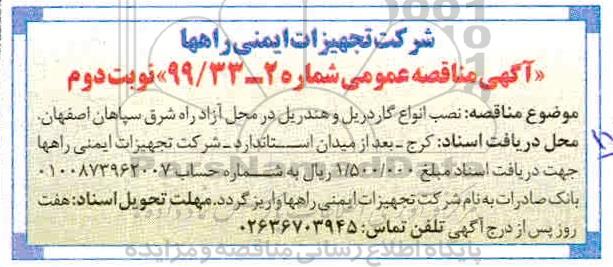 شرکت تجهیزات ایمنی راهها
«آگهی مناقصه عمومی شماره ۲ــ۹۹/۳۳» نوبت دوم
موضوع مناقصه: نصب انواع گاردریل و هندریل در محل آزاد راه شرق سپاهان اصفهان.
محل دریافت اسناد: کرج ـ بعد از میدان استاندارد ـ شرکت تجهیزات ایمنی راهها
جهت دریافت اسناد مبلغ ۱/۵۰۰/۰۰۰ ریال به شماره حساب ۰۱۰۰۸۷۳۹۶۲۰۰۷
بانک صادرات به نام شرکت تجهیزات ایمنی راهها واریز گردد. مهلت تحویل اسناد: هفت
روز پس از درج آگهی تلفن تماس: ۰۲۶۳۶۷۰۳۹۴۵
ParsNamadData
پایگاه اطلاع رسانی مناقصه و مزایده